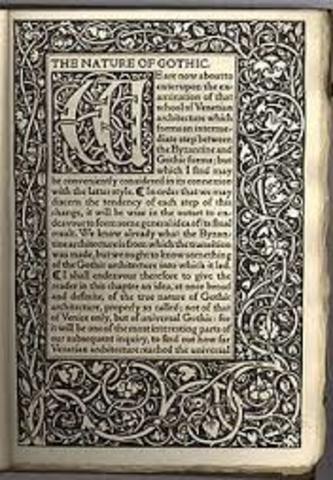 THE NATURE OF GOTHIC.
WE are now about to
enter upon the ex-
amination of that
school of Venetian
architecture which
forms an interme-
diate step between
the Byzantine and
Gothic forms; but
which I find may
be conveniently considered in its connexion
with the latter style. ¶ In order that we may
discern the tendency of each step of this
change, it will be wise in the outset to en-
deavour to form some general idea of its final
result. We know already what the Byzan-
tine architecture is from which the transition
was made, but we ought to know something
of the Gothic architecture into which it led.
¶ I shall endeavour therefore to give the
reader in this chapter an idea, at once broad
and definite, of the true nature of Gothic
architecture, properly so called; not of that
of Venice only, but of universal Gothic: for
it will be one of the most interesting parts of
our subsequent inquiry, to find out how far
Venetian architecture reached the universal